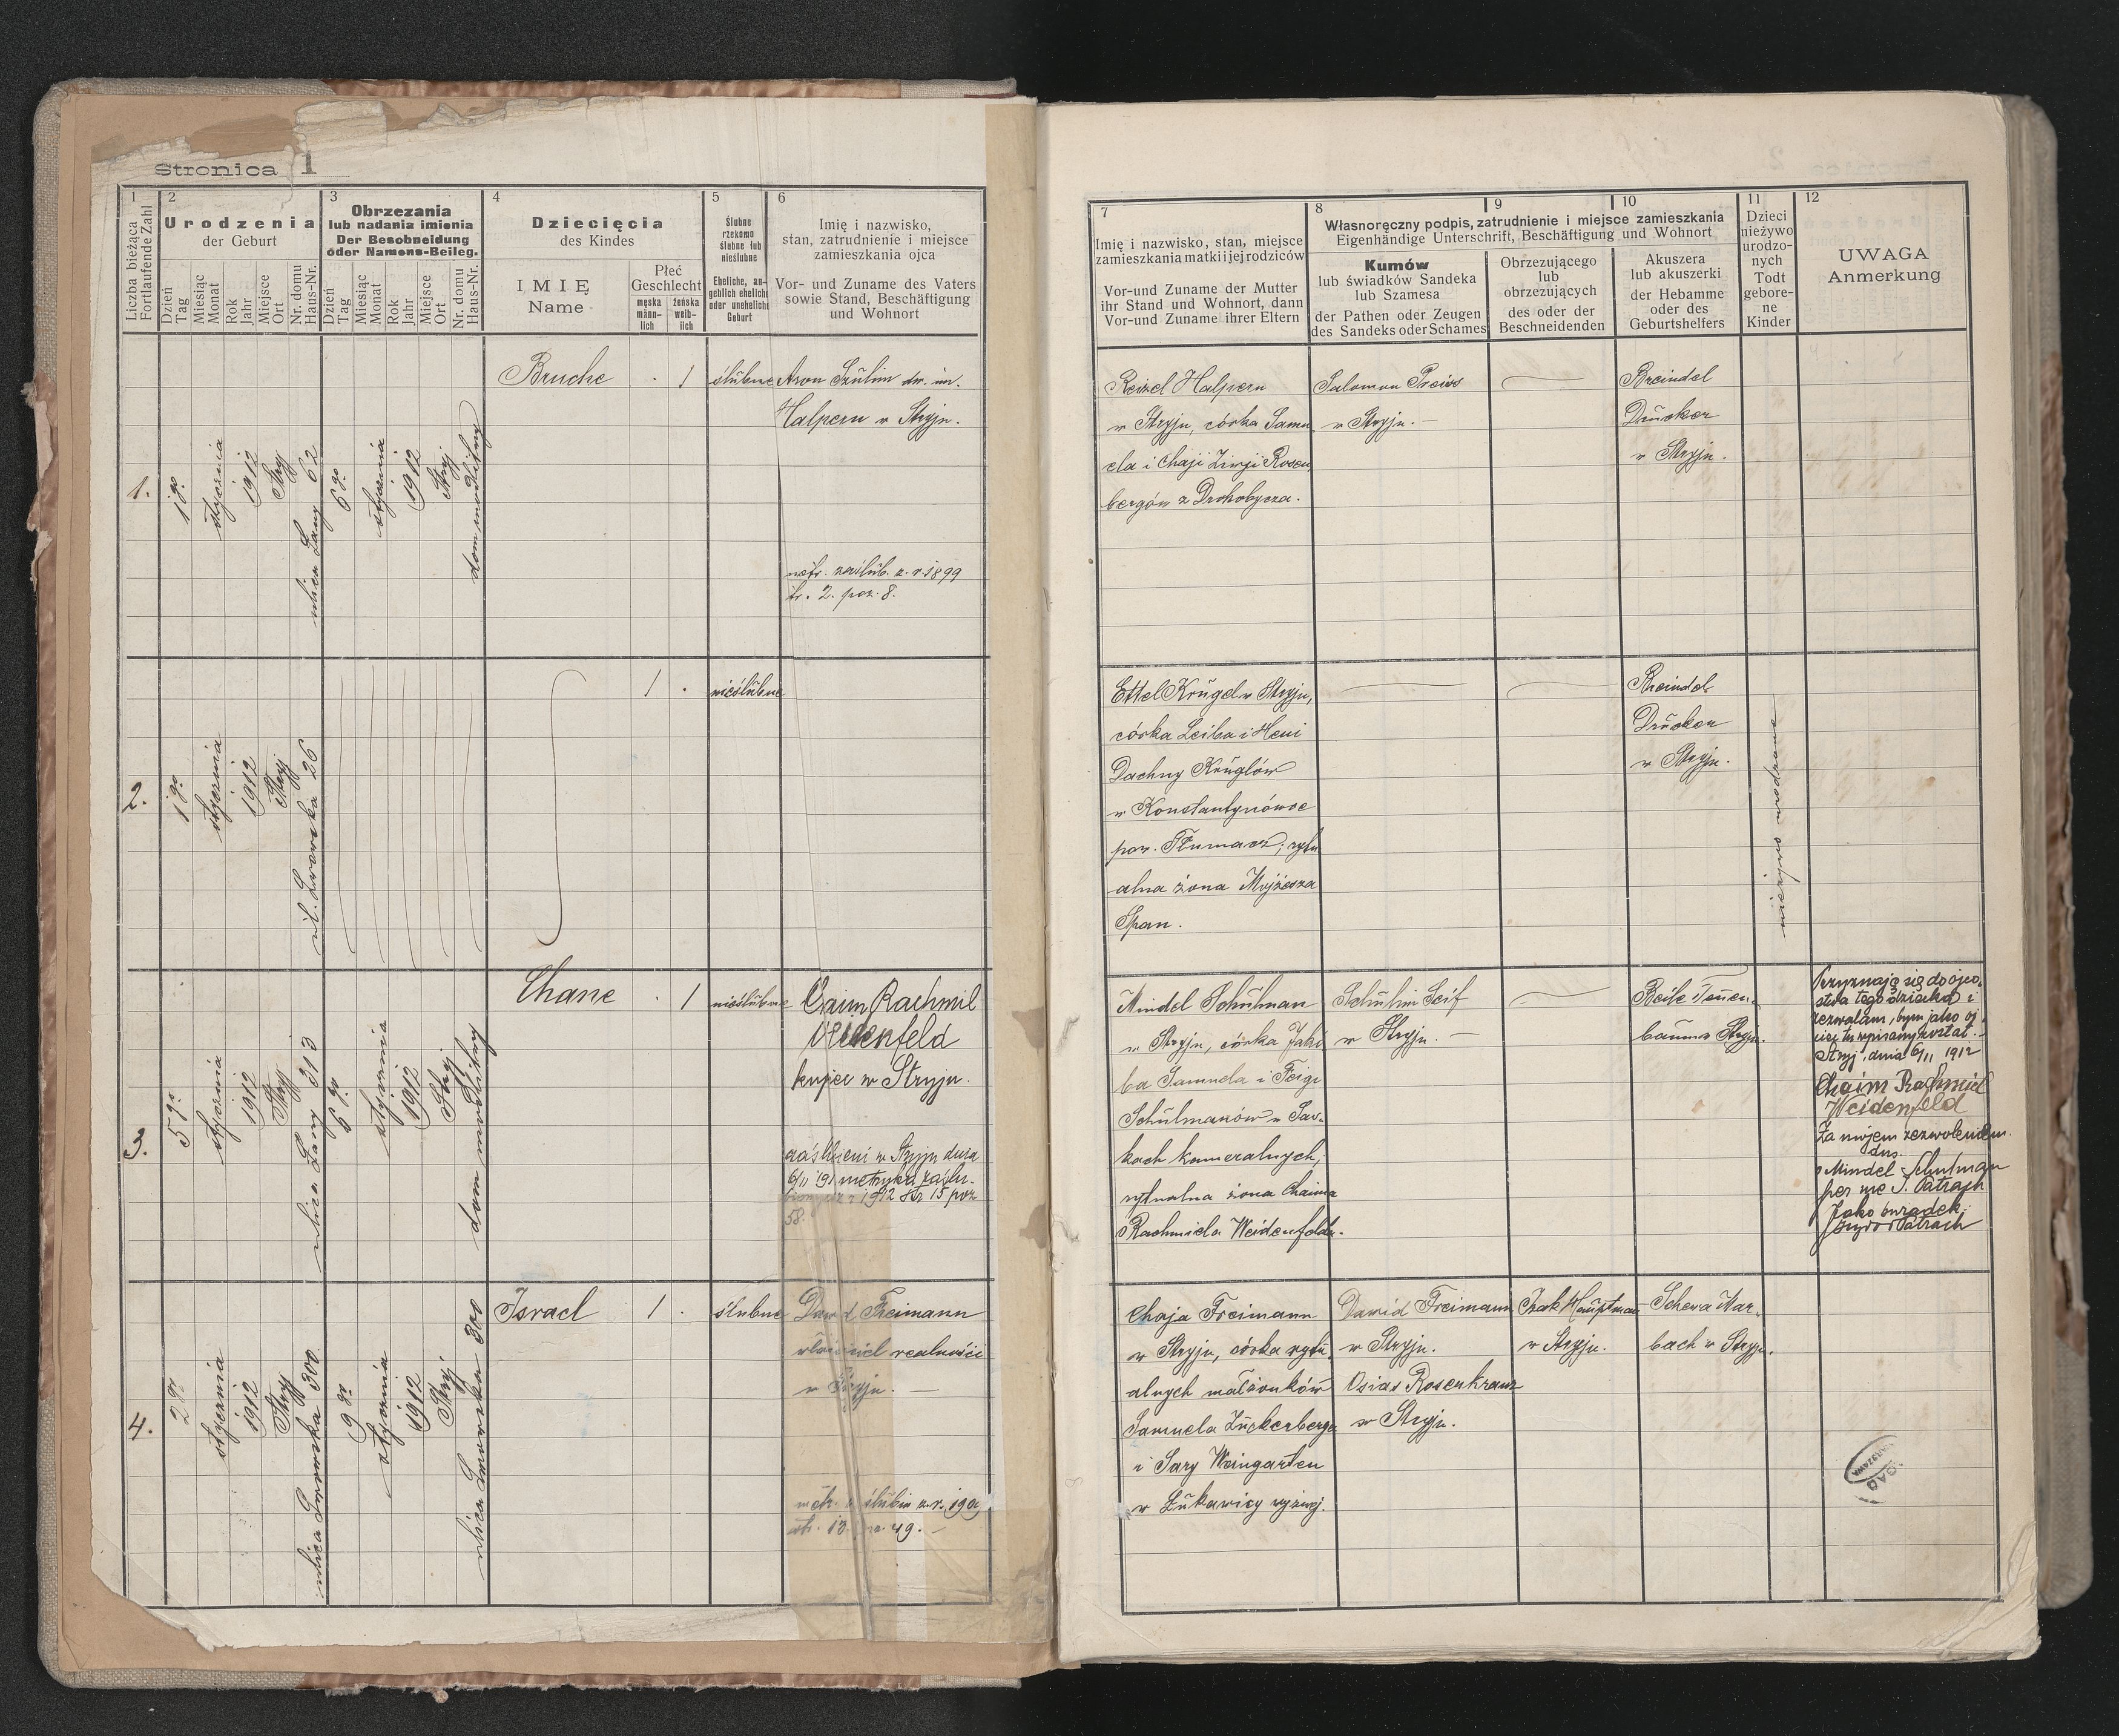 Stronica 1
1
2
3
4
5
6
Liczba bieżąca
Fortlaufende Zahl
Urodzenia
der Geburt
Dzień
Tag
Miesiąc
Monat
Rok
Jahr
Miejsce
Ort
Nr. domu
Haus-Nr.
Obrzezania
lub nadania imienia
Der Beschneidung
oder Namens-Beileg.
Dzień
Tag
Miesiąc
Monat
Rok
Jahr
Miejsce
Ort
Nr. domu
Haus-Nr.
Dziecięcia
des Kindes
IMIĘ
Name
Płeć
Geschlecht
męska
männ-
lich
żeńska
weib-
lich
Ślubne
rzekomo
ślubne lub
nieślubne
Eheliche, an-
geblich eheliche
oder uneheliche
Geburt
Imię i nazwisko,
stan, zatrudnienie i miejsce
zamieszkania ojca
Vor- und Zuname des Vaters
sowie Stand, Beschäftigung
und Wohnort
1.
1go
stycznia
1912
Stryj
ulica Łany 62
6go
stycznia
1912
Stryj
dom modlitwy
Bruche
. 1
ślubne
Aron Szulim dw. im.
Halpern w Stryju.
metr. zaślub. z. r. 1899
str. 2. poz. 8.
2.
1go
stycznia
1912
Stryj
ul. Lwowska 26
1 .
nieślubne
3.
5go
stycznia
1912
Stryj
ulica Łany 313
6go
stycznia
1912
Stryj
dom modlitwy
Chane
. 1
nieślubne
Chaim Rachmil
Weidenfeld
kupiec w Stryju.
zaślubieni w Stryju dnia
6/II 191 metryka zaślu-
1912 str 15 poz
58.
4.
2go
stycznia
1912
Stryj
ulica Lwowska 300
9go
stycznia
1912
Stryj
ulica Lwowska 300
Israel
1 .
ślubne
Dawid Freimann
właściciel realności
w Stryju. —
metr. zaślubin z. r. 190
str. 13. poz. 49. —
7
8
9
10
11
12
Imię i nazwisko, stan, miejsce
zamieszkania matki i jej rodziców
Vor- und Zuname der Mutter
ihr Stand und Wohnort, dann
Vor- und Zuname ihrer Eltern
Własnoręczny podpis, zatrudnienie i miejsce zamieszkania
Eigenhändige Unterschrift, Beschäftigung und Wohnort
Kumów
lub świadków Sandeka
lub Szamesa
der Pathen oder Zeugen
des Sandeks oder Schames
Obrzezującego
lub
obrzezujących
des oder der
Beschneidenden
Akuszera
lub akuszerki
der Hebamme
oder des
Geburtshelfers
Dzieci
nieżywo
urodzo-
nych
Todt
gebore-
ne
Kinder
UWAGA
Anmerkung
Reizel Halpern
w Stryju, córka Samu
ela i Chaji Ziwji Rosen
bergów z Drohobycza.
Salomon Preiss
w Stryju. —
Breindel
Drücker
w Stryju.
Ettel Krügel w Stryju,
córka Leiba i Heni
Dachny Krüglów
w Konstantynówce
pow. Tłumacz, rytu
alna żona Mojżesza
Span.
Breindel
Drücker
w Stryju.
nieżywo urodzone
Mindel Schulman
w Stryju, córka Jakó
ba Samuela i Feigi
Schulmanów w Ław-
kach kameralnych,
rytualna żona Chaima
Rachmiela Weidenfelda.
Schulim Seif
w Stryju. —
Beile Tenen-
bauma Stryju.
Przyznaję się do ojco-
stwa tego dziecka i
zezwalam, bym jako oj
ciec tu wpisany został. —
Stryj, dnia 6/II 1912
Chaim Rachmiel
Weidenfeld
Za mojem zezwoleniem.
dns
Mindel Schulman
per me S. Patrach
Jako świadek:
Patrach
Chaja Freimann
w Stryju, córka rytu
alnych małżonków
Samuela Zuckerberga
i Sary Weingarten
w Łukawicy wyżnej.
Dawid Freimann
w Stryju.
Osias Rosenkranz
w Stryju.
Izak Hauptman
w Stryju.
Schewa Mar-
bach w Stryju.
AGAD
WARSZAWA